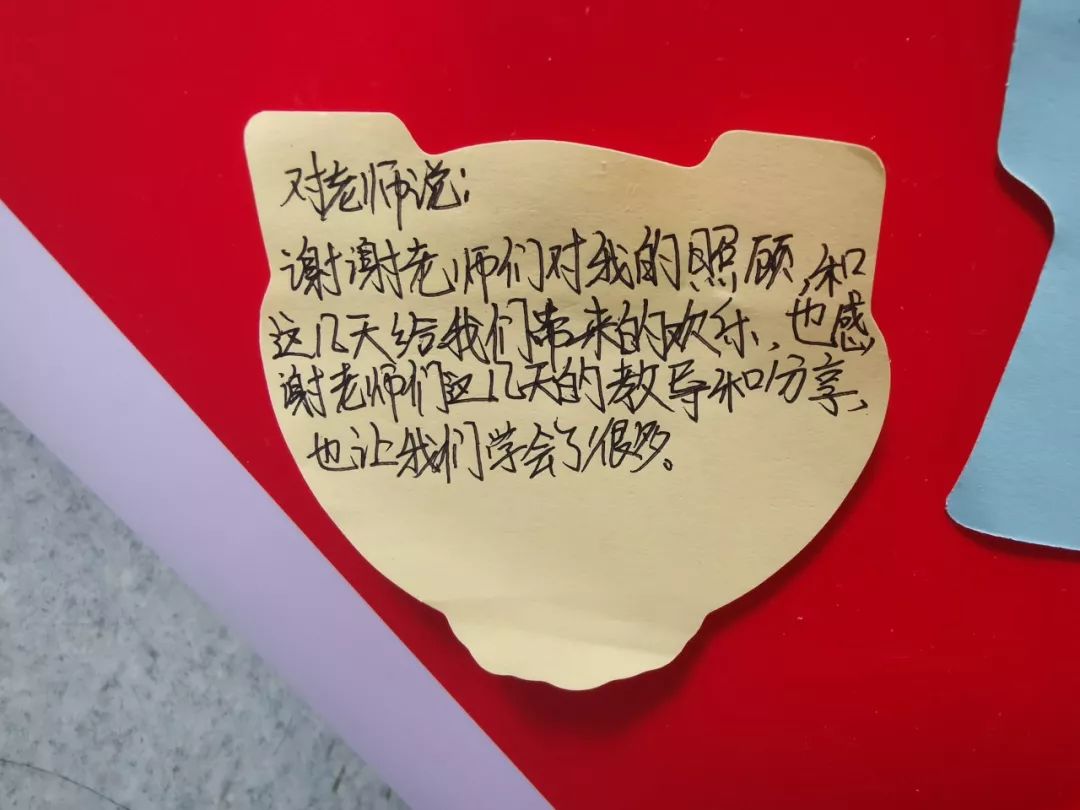 对老师说:
谢谢老师们对我的照顾,和
这几天给我们带来的欢乐、也感
谢老师们这几天的教导和分享、
也让我们学会了很多。